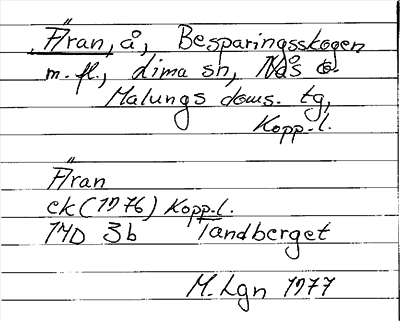 Äran, å, Besparingsskogen
m.fl., Lima sn, Nås o.
Malungs doms. tg,
Kopp.l.
Äran
ek (1976) Kopp.l.
14D 3b Tandberget
M.Lgn 1977